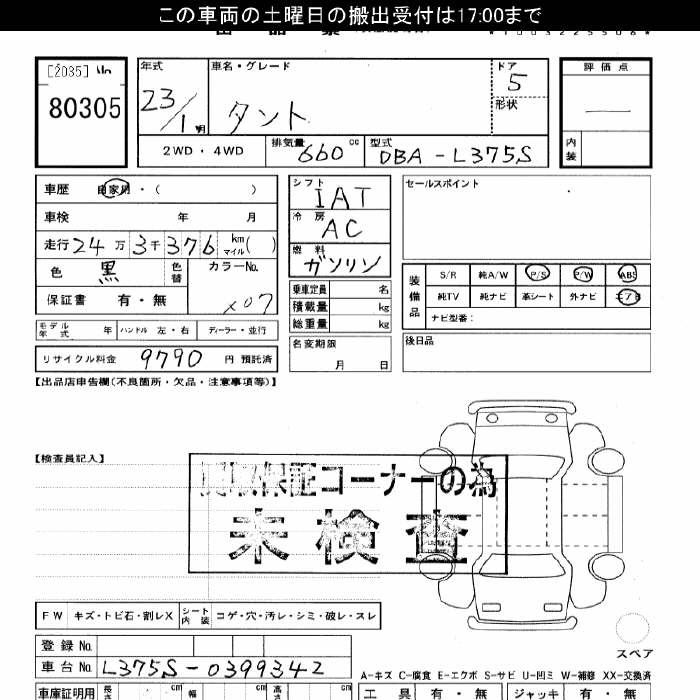 この車両の土曜日の搬出受付は17:00まで
[2035] No
80305
年式 車名・グレード ドア 評価点
23/1 明 タント 5
形状
2WD・4WD 排気量 660 cc 型式 DBA-L375S 内装
車歴 自家用・( )
車検 年 月
走行 24万3千376 km マイル( )
色 黒 色替 カラーNo.
保証書 有・無 X07
モデル年式 年 ハンドル 左・右 ディーラー・並行
リサイクル料金 9790 円 預託済
シフト IAT
冷房 AC
燃料 ガソリン
乗車定員 名
積載量 kg
総重量 kg
名変期限
月 日
セールスポイント
装備品 S/R 純A/W P/S P/W ABS
純TV 純ナビ 革シート 外ナビ エアB
ナビ型番:
後日品
【出品店申告欄(不良箇所・欠品・注意事項等)】
【検査員記入】
保証コーナーの為
未検査
FW キズ・トビ石・割レX シート内装 コゲ・穴・汚レ・シミ・破レ・スレ
スペア
登録No.
車台No. L375S-0399342
A-キズ C-腐食 E-エクボ S-サビ U-凹ミ W-補修 XX-交換済
車庫証明用 長さ cm 幅 cm 高さ cm 工具 有・無 ジャッキ 有・無